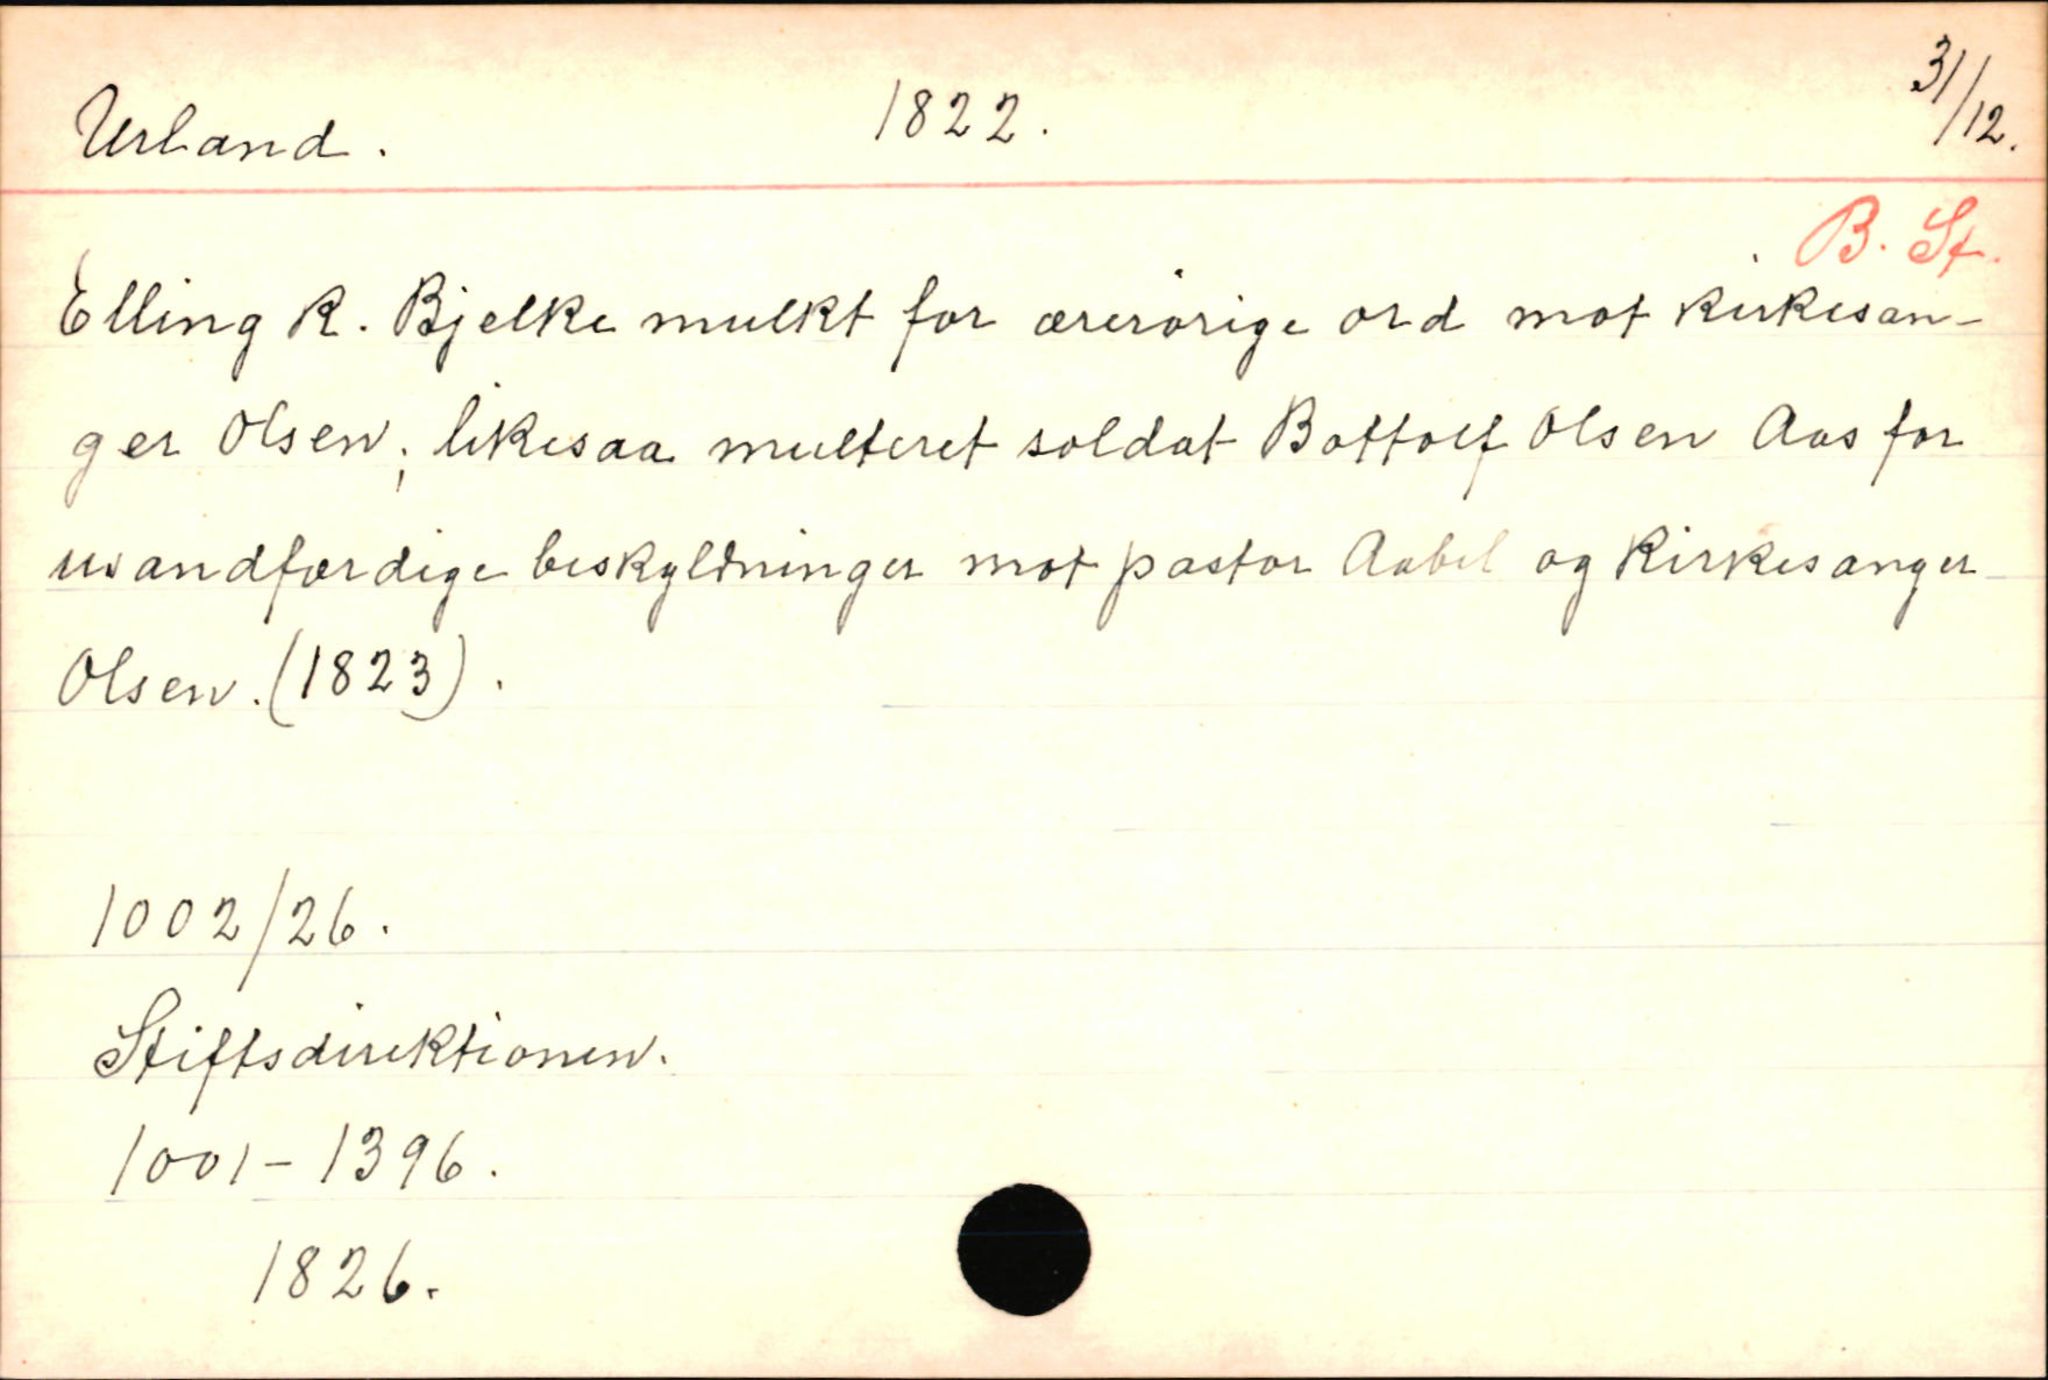 Urland. 1822. 31/12.
B. St.
Elling K. Bjelke mulkt for ærerørige ord mot kirkesan-
ger Olsen; likesaa multeret soldat Bottolf Olsen Aas for
usandfærdige beskyldninger mot pastor Aabel og Kirkesanger
Olsen. (1823).
1002/26.
Stiftsdirektionen.
1001-1396.
1826.